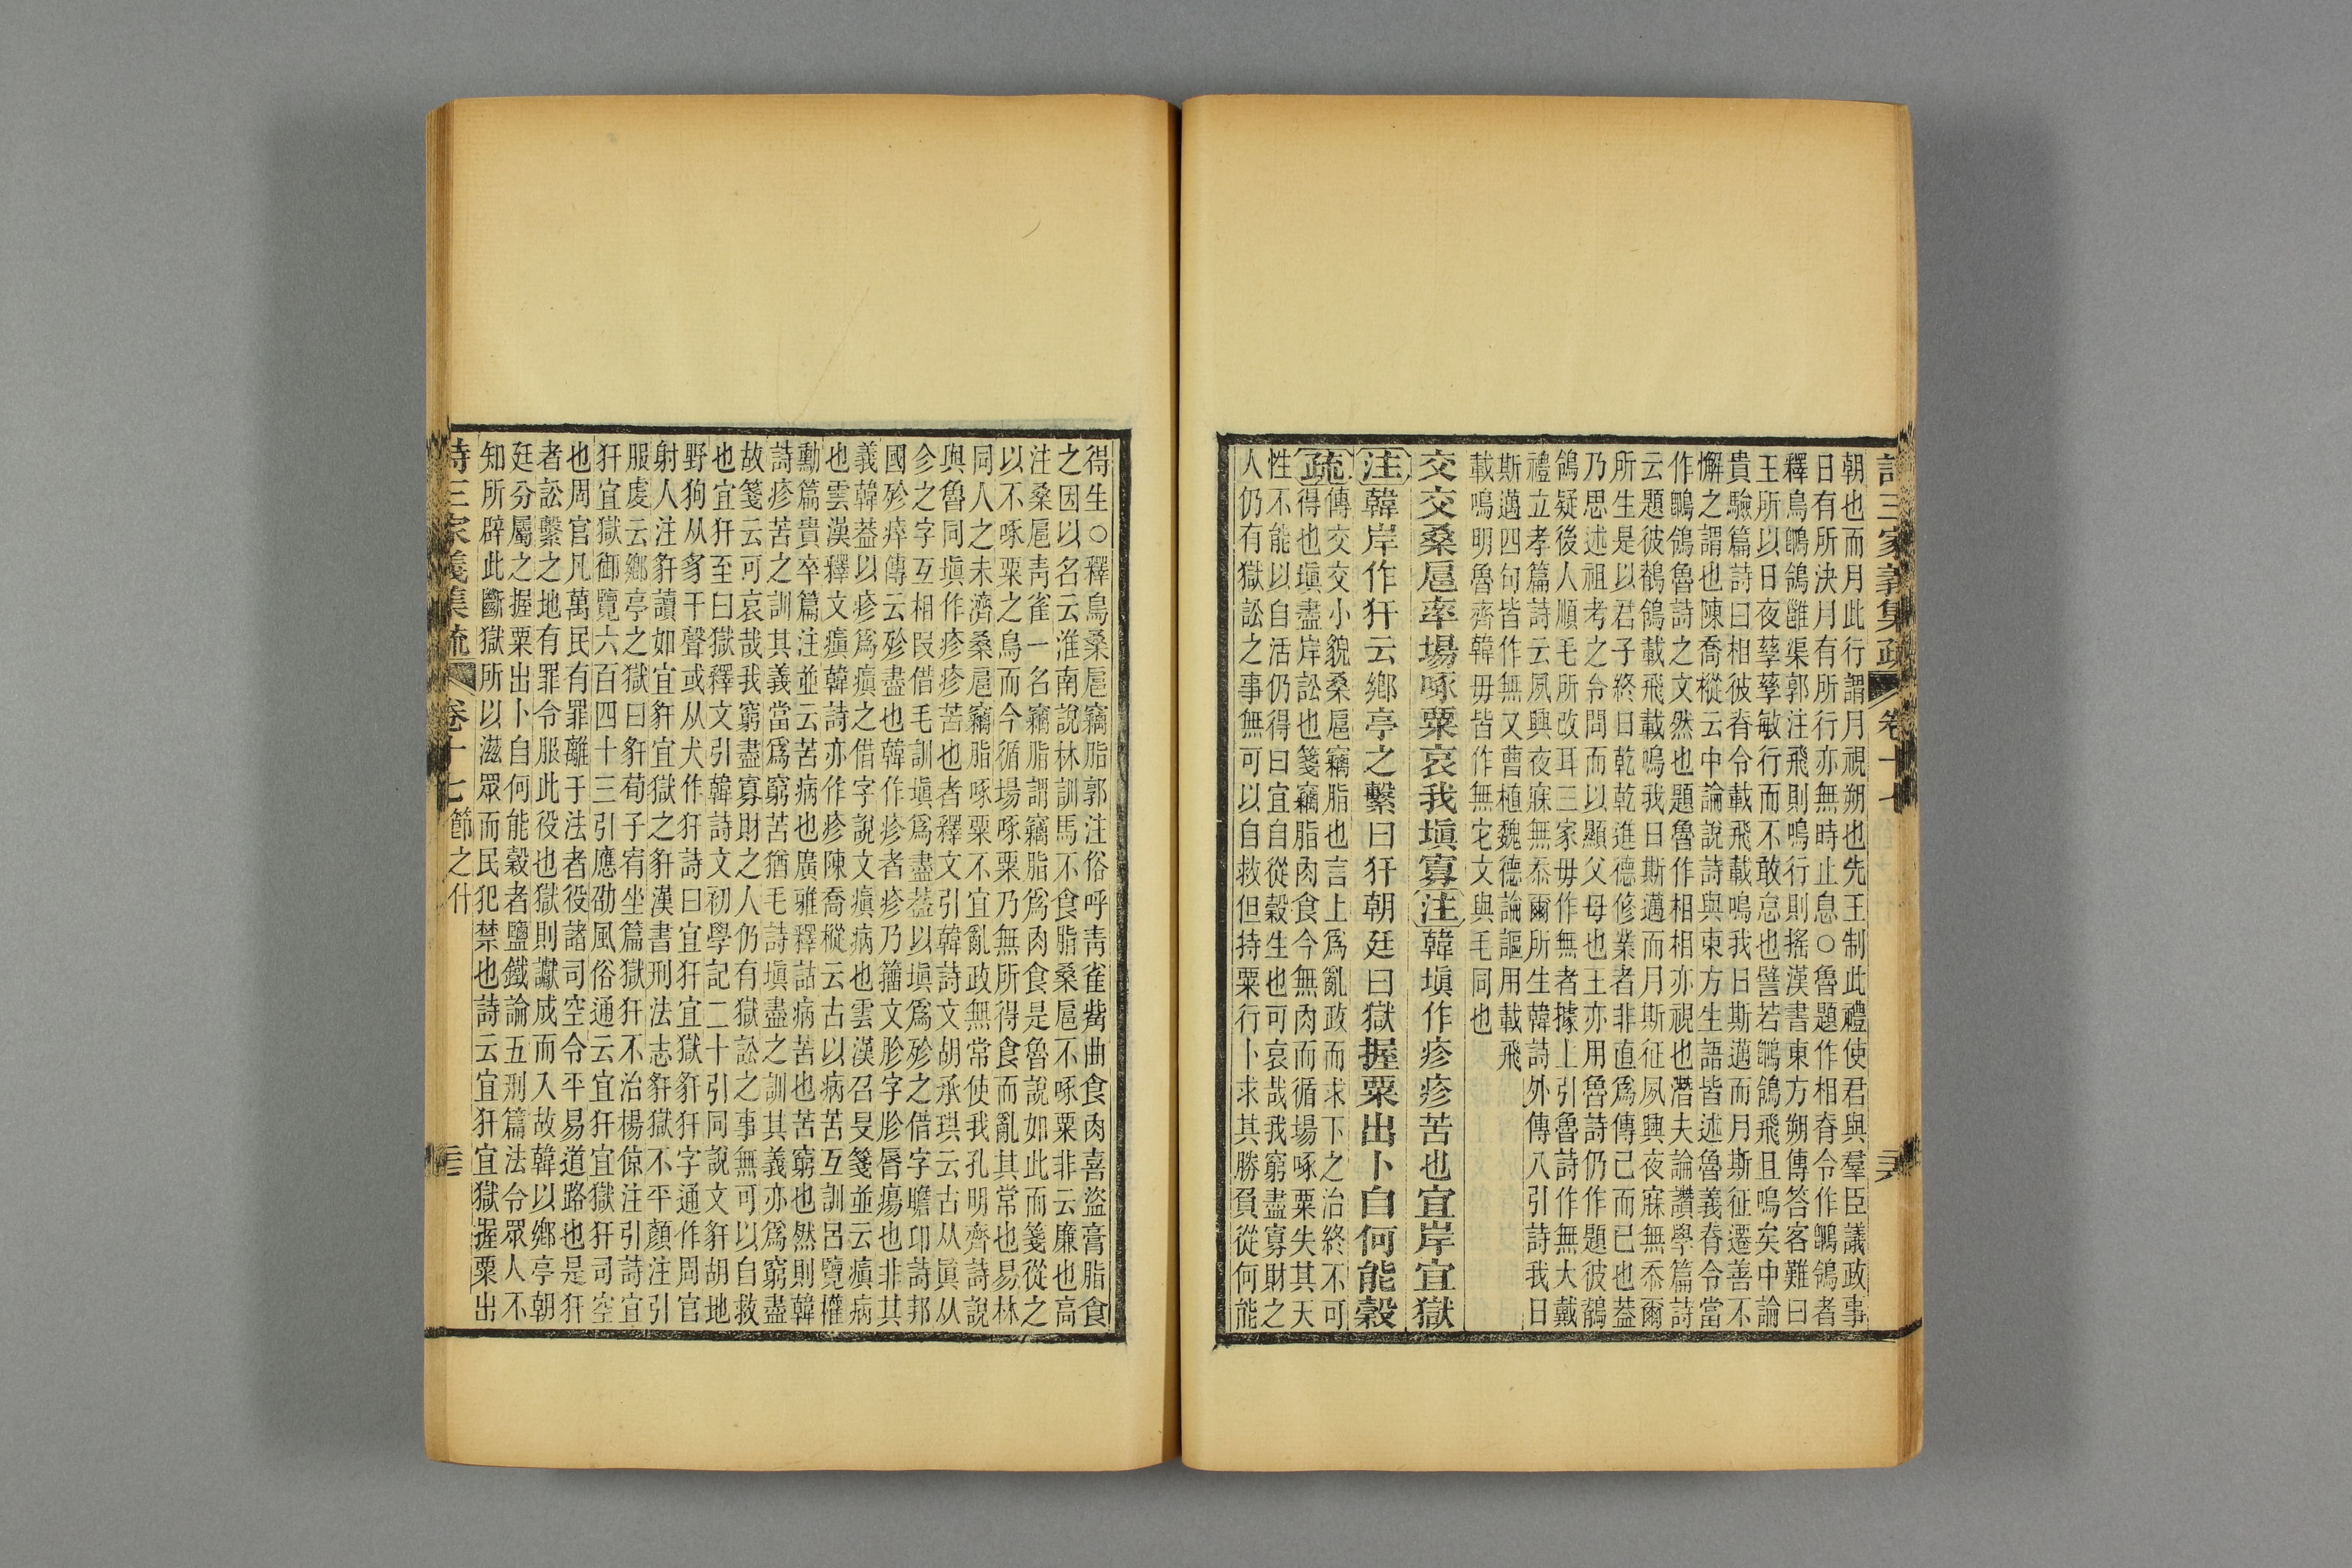 詩三家義集疏　卷十七
朝也而月此行謂月視朔也先王制此禮使君與羣臣議政事
日有所決月有所行亦無時止息○魯題作相脊令作鶺鴒者
釋鳥鶺鴒雝渠郭注飛則鳴行則搖漢書東方朔傳答客難曰
王所以日夜孳孳敏行而不敢怠也譬若鶺鴒飛且鳴矣中論
貴驗篇詩曰相彼脊令載飛載鳴我日斯邁而月斯征遷善不
懈之謂也陳喬樅云中論說詩與東方生語皆述魯義脊令當
作鶺鴒魯詩之文然也題魯作相相亦視也潛夫論讚學篇詩
云題彼鶺鴒載飛載鳴我日斯邁而月斯征夙興夜寐無忝爾
所生是以君子終日乾乾進德修業者非直爲傳己而已也蓋
乃思述祖考之令問而以顯父母也王亦用魯詩仍作題彼鶺
鴒疑後人順毛所改耳三家毋作無者據上引魯詩作無大戴
禮立孝篇詩云夙興夜寐無忝爾所生韓詩外傳八引詩我日
斯邁四句皆作無又曹植魏德論謳用載飛
載鳴明魯齊韓毋皆作無它文與毛同也
交交桑扈率場啄粟哀我填寡注韓填作疹疹苦也宜岸宜獄
注韓岸作犴云鄉亭之繫曰犴朝廷曰獄握粟出卜自何能穀
疏傳交交小貌桑扈竊脂也言上爲亂政而求下之治終不可
得也填盡岸訟也箋竊脂肉食今無肉而循場啄粟失其天
性不能以自活仍得曰宜自從穀生也可哀哉我窮盡寡財之
人仍有獄訟之事無可以自救但持粟行卜求其勝負從何能
得生○釋鳥桑扈竊脂郭注俗呼青雀觜曲食肉喜盜膏脂食
之因以名云淮南說林訓馬不食脂桑扈不啄粟非云廉也高
注桑扈青雀一名竊脂謂竊脂爲肉食是魯說如此而箋從之
以不啄粟之鳥而今循場啄粟乃無所得食而亂其常也易林
同人之未濟桑扈竊脂啄粟不宜亂政無常使我孔明齊詩說
與魯同填作疹疹苦也者釋文引韓詩文胡承珙云古从眞从
㐱之字互相叚借毛訓填爲盡蓋以填爲殄之借字瞻卬詩邦
國殄瘁傳云殄盡也韓作疹者疹乃籀文胗字胗脣瘍也非其
義韓蓋以疹爲瘨之借字說文瘨病也雲漢召旻箋並云瘨病
也雲漢釋文瘨韓詩亦作疹陳喬樅云古以病苦互訓呂覽權
勳篇貴卒篇注並云苦病也廣雅釋詁病苦也苦窮也然則韓
詩疹苦之訓其義當爲窮苦猶毛詩填盡之訓其義亦爲窮盡
故箋云可哀哉我窮盡寡財之人仍有獄訟之事無可以自救
也宜犴至曰獄釋文引韓詩文初學記二十引同說文豻胡地
野狗从豸干聲或从犬作犴詩曰宜犴宜獄豻犴字通作周官
射人注豻讀如宜豻宜獄之豻漢書刑法志豻獄不平顏注引
服虔云鄉亭之獄曰豻荀子宥坐篇獄犴不治楊倞注引詩宜
犴宜獄御覽六百四十三引應劭風俗通云宜犴宜獄犴司空
也周官凡萬民有罪離于法者役諸司空令平易道路也是犴
者訟繫之地有罪令服此役也獄則讞成而入故韓以鄉亭朝
廷分屬之握粟出卜自何能穀者鹽鐵論五刑篇法令眾人不
知所辟此斷獄所以滋眾而民犯禁也詩云宜犴宜獄握粟出
詩三家義集疏　卷十七　節之什